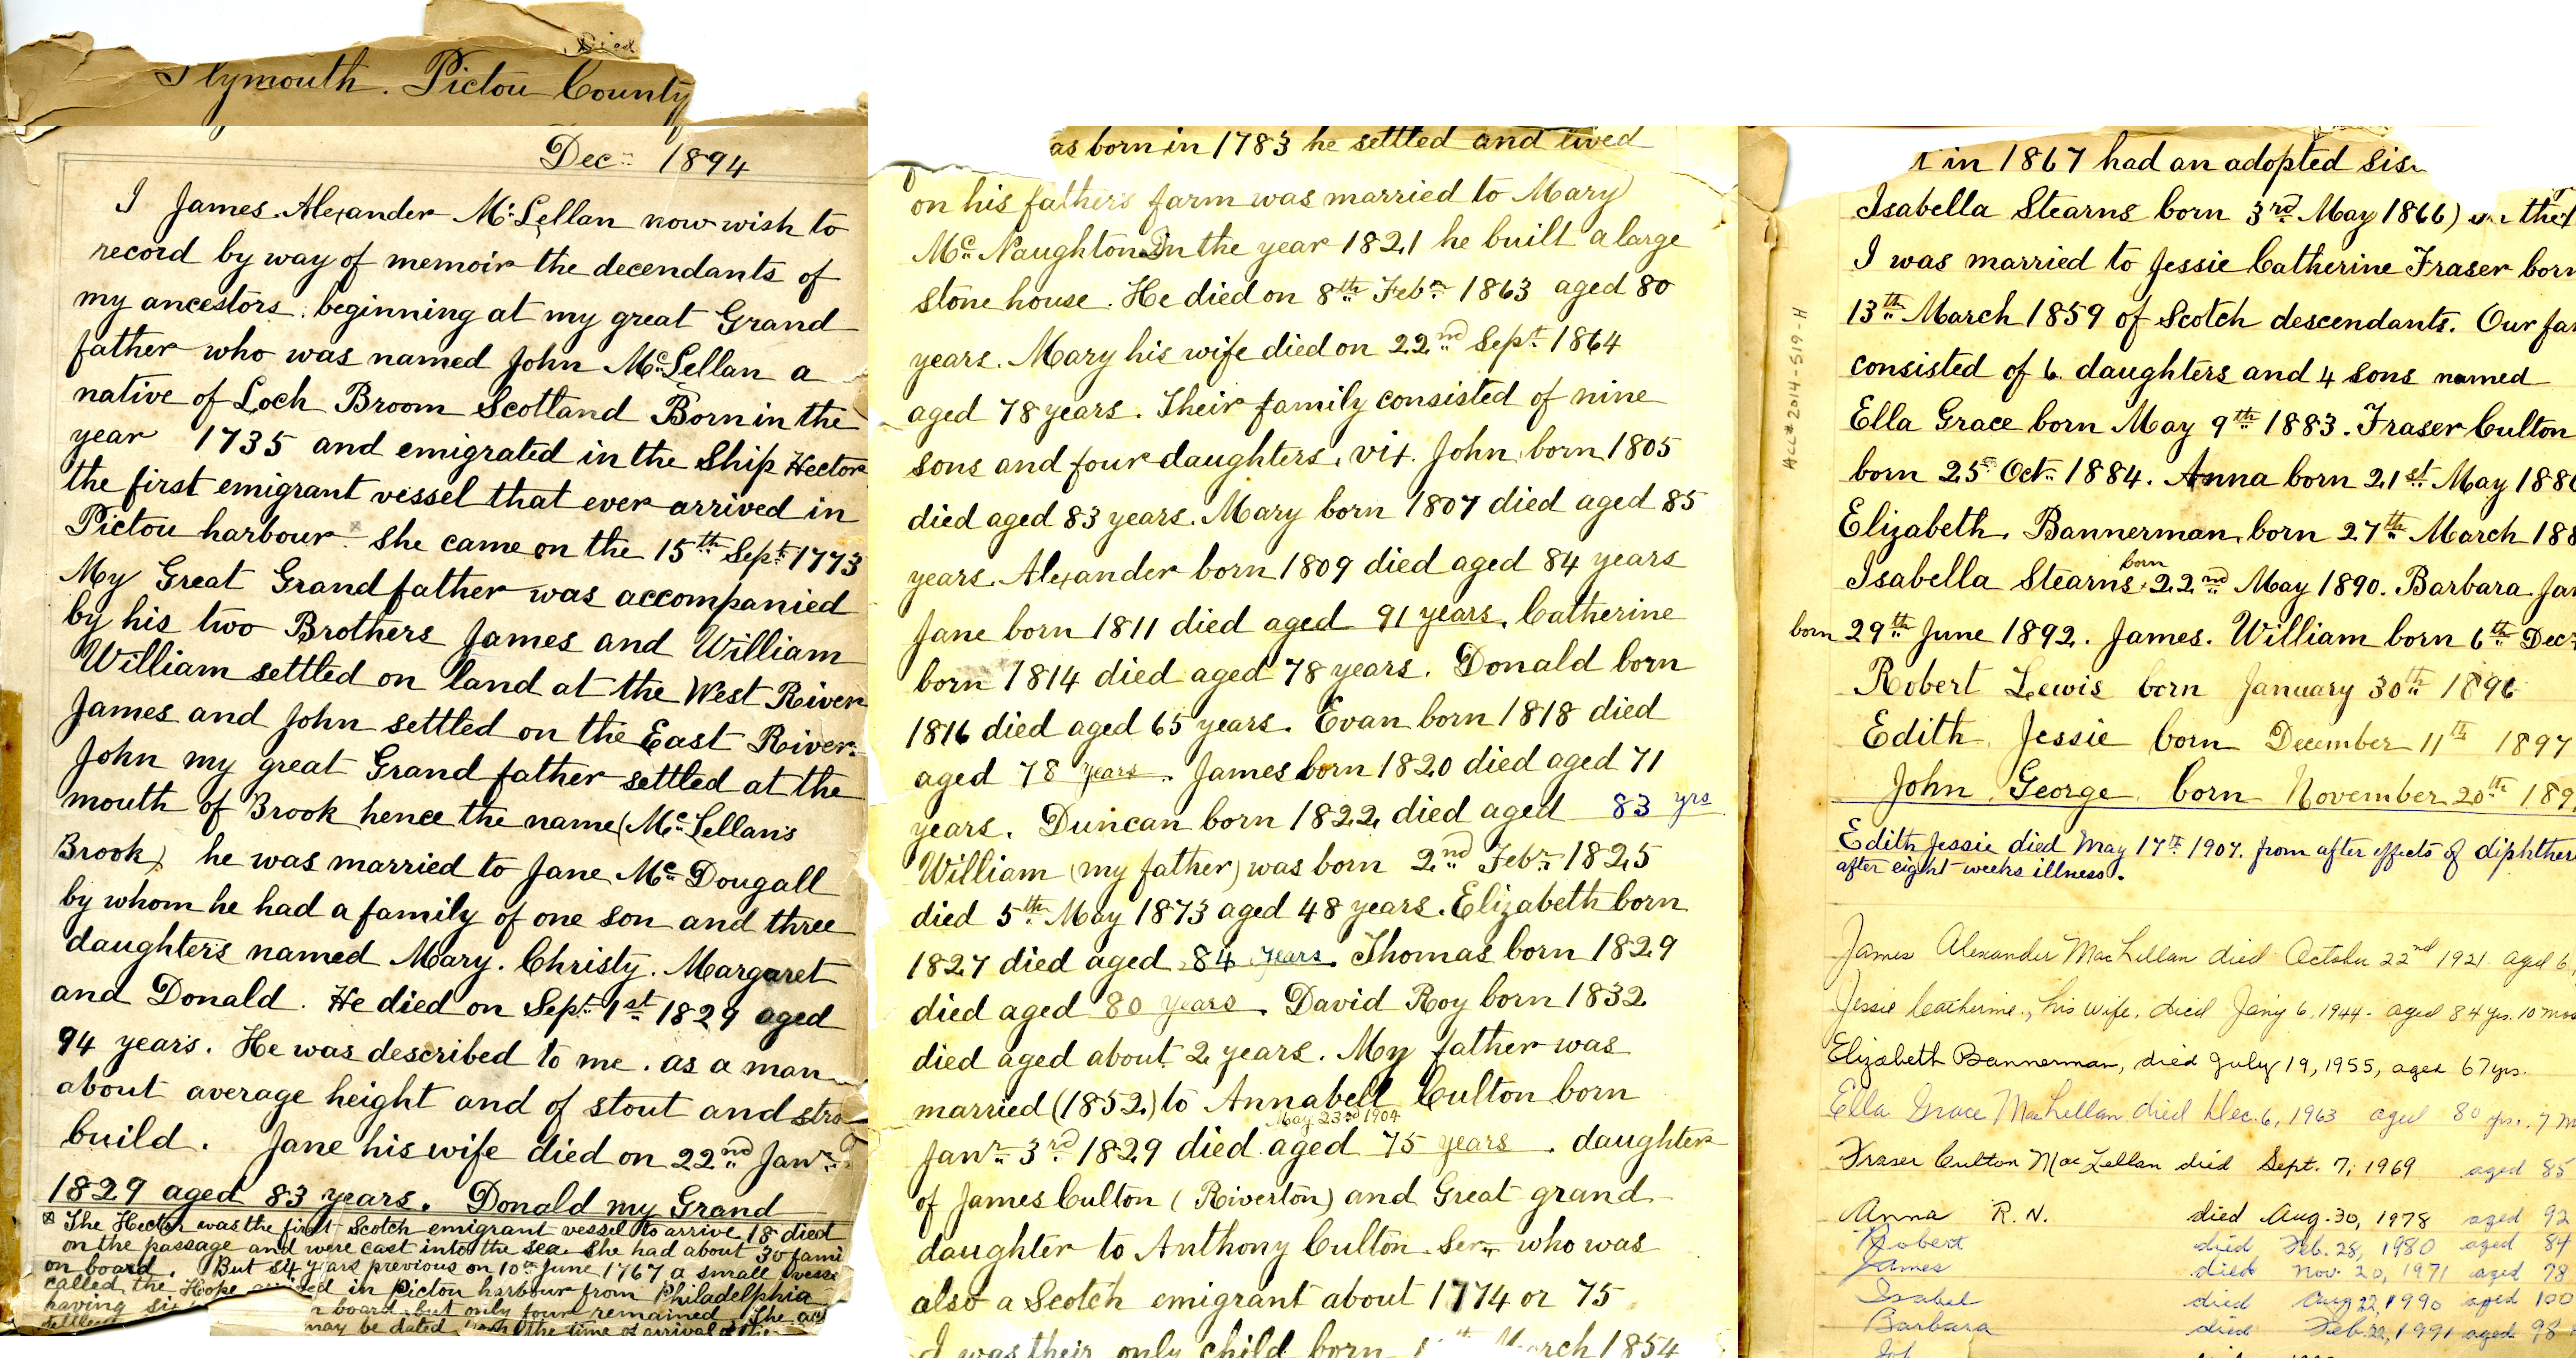 Died
Plymouth. Pictou County
Dec. 1894
I James Alexander McLellan now wish to
record by way of memoir the decendants of
my ancestors. beginning at my great Grand
father who was named John McLellan a
native of Loch Broom Scotland Born in the
year 1735 and emigrated in the Ship Hector
the first emigrant vessel that ever arrived in
Pictou harbour. she came on the 15th Sept. 1773
My Great Grandfather was accompanied
by his two Brothers James and William
William settled on land at the West River
James and John settled on the East River.
John my great Grand father settled at the
mouth of Brook hence the name (McLellan's
Brook) he was married to Jane McDougall
by whom he had a family of one son and three
daughters named Mary. Christy. Margaret
and Donald. He died on Sept. 1st 1829 aged
94 years. He was described to me. as a man
about average height and of stout and stro
build. Jane his wife died on 22nd Janr.
1829 aged 83 years. Donald my Grand
The Hector was the first Scotch emigrant vessel to arrive. 18 died
on the passage and were cast into the sea. she had about 30 fami
on board. But years previous on 10th June 1767 a small vesse
called the Hope arrived in Pictou harbour from Philadelphia
having board but only four remained. The
settled may be dated the time of arrival of the
as born in 1783 he settled and lived
on his fathers farm was married to Mary
McNaughton In the year 1821 he built a large
stone house. He died on 8th Febr. 1863 aged 80
years. Mary his wife died on 22nd Sept. 1864
aged 78 years. Their family consisted of nine
sons and four daughters, viz. John born 1805
died aged 83 years. Mary born 1807 died aged 85
years. Alexander born 1809 died aged 84 years
Jane born 1811 died aged 91 years. Catherine
born 1814 died aged 78 years. Donald born
1816 died aged 65 years. Evan born 1818 died
aged 78 years. James born 1820 died aged 71
years. Duncan born 1822 died aged 83 yrs
William (my father) was born 2nd Febr. 1825
died 5th May 1873 aged 48 years. Elizabeth born
1827 died aged 84 years. Thomas born 1829
died aged 80 years. David Roy born 1832
died aged about 2 years. My father was
married (1852) to Annabell Culton born
May 23rd 1904
Janr. 3rd 1829 died aged 75 years. daughter
of James Culton (Riverton) and Great grand
daughter to Anthony Culton Senr. who was
also a Scotch emigrant about 1774 or 75
I was their only child born March 1854
Acc# 2014-519-H
in 1867 had an adopted sis
Isabella Stearns born 3rd May 1866)
I was married to Jessie Catherine Fraser born
13th March 1859 of Scotch descendants. Our fa
consisted of 6 daughters and 4 sons named
Ella Grace born May 9th 1883. Fraser Culton
born 25th Oct. 1884. Anna born 21st May 188
Elizabeth. Bannerman born 27th March 188
born
Isabella Stearns 22nd May 1890. Barbara Ja
born 29th June 1892. James. William born 6th Dec.
Robert Lewis born January 30th 1896
Edith Jessie born December 11th 1897
John George born November 20th 189
Edith Jessie died May 17th 1907. from after effects of diphther
after eight weeks illness.
James Alexander MacLellan died October 22nd 1921 aged 6
Jessie Catherine, his wife, died Jan'y 6, 1944. aged 84 yrs. 10 mos
Elizabeth Bannerman, died July 19, 1955, aged 67 yrs.
Ella Grace MacLellan died Dec. 6, 1963 aged 80 yrs. 7 m
Fraser Culton MacLellan died Sept. 7, 1969 aged 85
Anna R.N. died Aug. 30, 1978 aged 92
Robert died Feb. 28, 1980 aged 84
James died Nov. 20, 1971 aged 78
Isabel died Aug 22, 1990 aged 100
Barbara died Feb. 22, 1991 aged 98